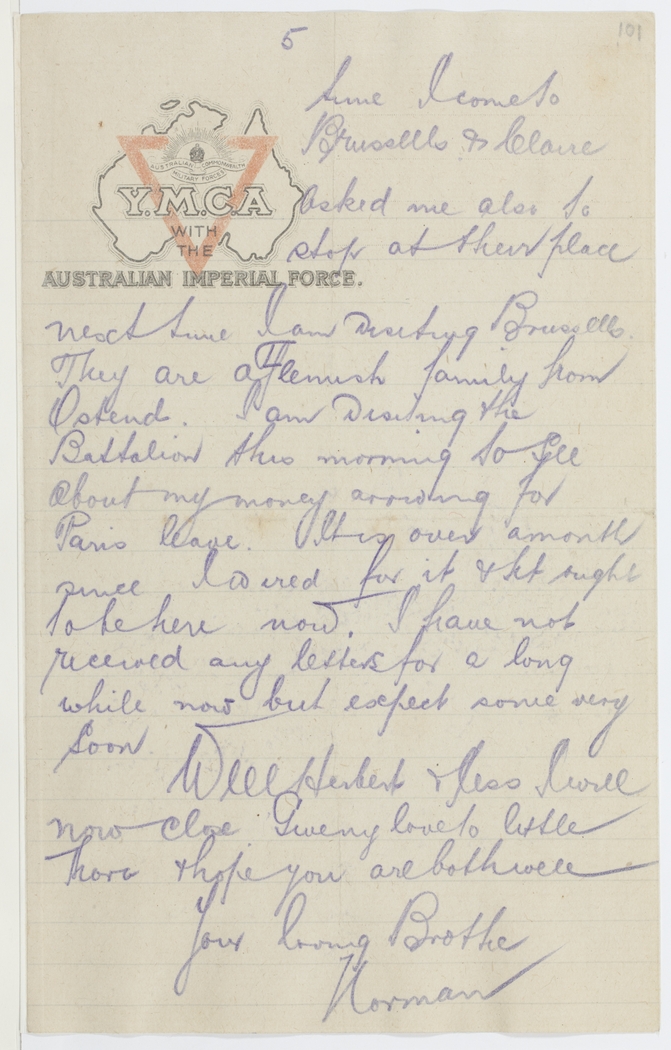 5
101
time I come to
Brussells & Claire
AUSTRALIAN COMMONWEALTH
MILITARY FORCES
Y.M.C.A
WITH
THE
AUSTRALIAN IMPERIAL FORCE.
asked me also to
stop at their place
next time I am visiting Brussells.
They are a Flemish family from
Ostend. I am visiting the
Battalion this morning to see
about my money arriving for
Paris leave. It is over a month
since I wired for it & it ought
to be here now. I have not
received any letters for a long
while now but expect some very
soon
Well Herbert & Jess I will
now close Give my love to little
Thora & hope you are both well
Your loving Brother
Norman